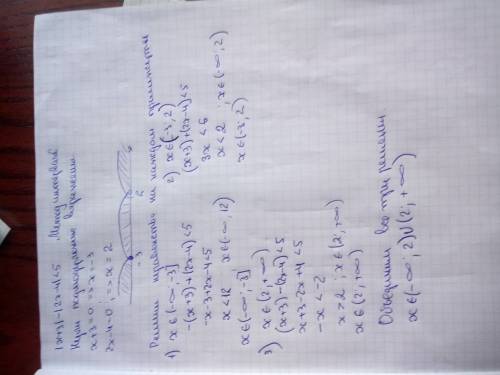 |x+3|-|2x-4|<5 Метод интервалов
Нули подмодульных выражений:
x+3=0 ; => x=-3
2x-4=0 ; => x=2
-3 2
Решим неравенство на каждом промежутке
1) x∈(-∞;-3]
-(x+3)+(2x-4)<5
-x-3+2x-4<5
x<12 x∈(-∞; 12)
x∈(-∞;-3]
2) x∈(-3; 2)
(x+3)+(2x-4)<5
3x<6
x<2 ; x∈(-∞; 2)
x∈(-3; 2)
3) x∈(2; +∞)
(x+3)-(2x-4)<5
x+3-2x+4<5
-x<-2
x>2 ; x∈(2; +∞)
x∈(2; +∞)
Объединим все три решения
x∈(-∞; 2)∪(2; +∞)